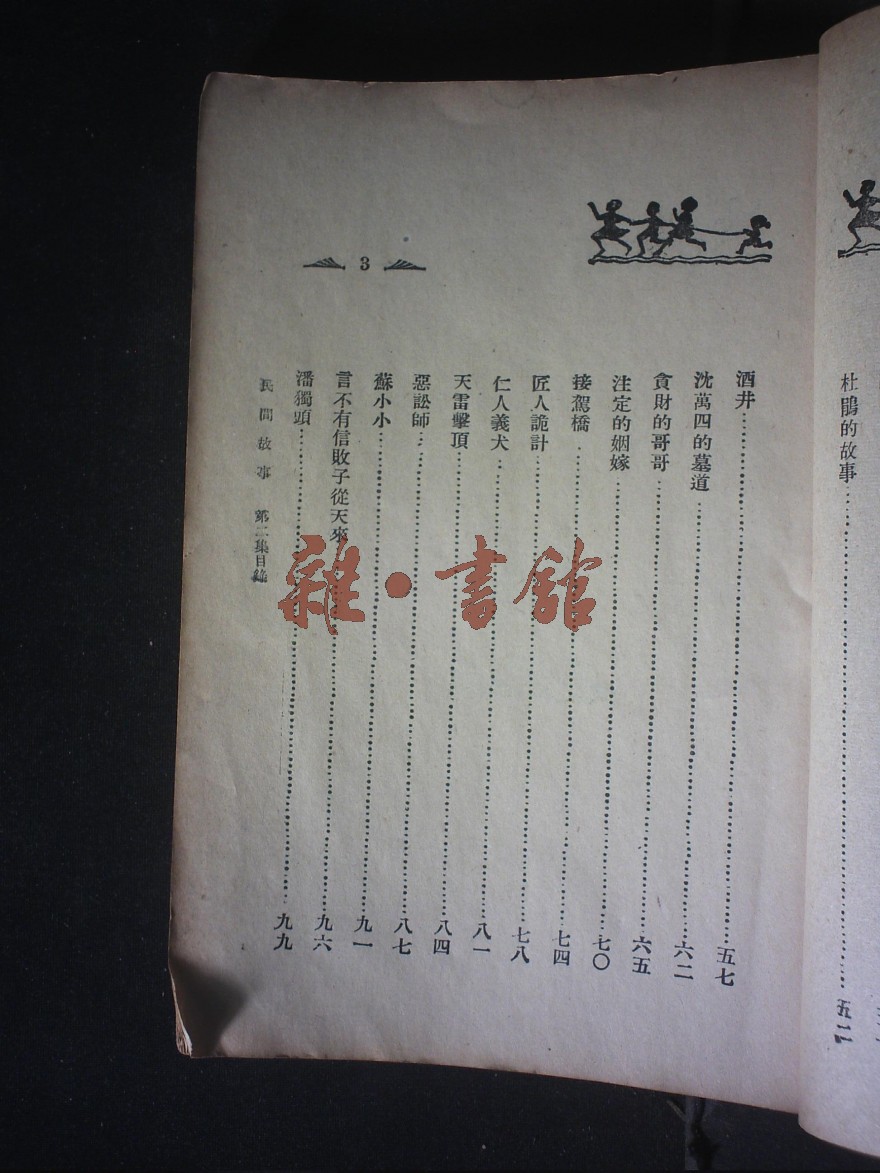 杜鵑的故事……五二
3
酒井……五七
沈萬四的墓道……六二
貪財的哥哥……六五
注定的姻嫁……七〇
接駕橋……七四
匠人詭計……七八
仁人義犬……八一
天雷擊頂……八四
惡訟師……八七
蘇小小……九一
言不有信敗子從天來……九六
潘獨頭……九九
民間故事 第二集目錄
雜·書館